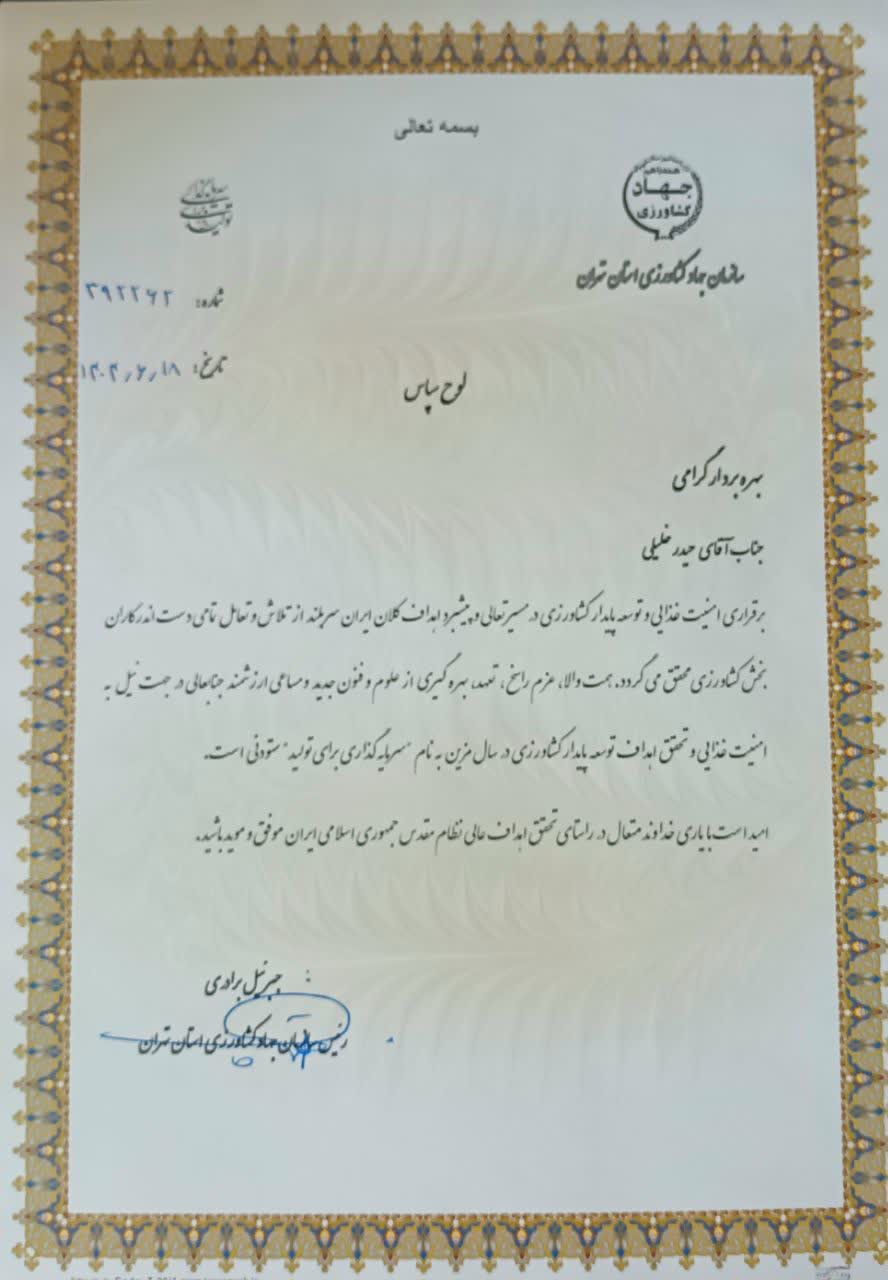 بسمه تعالی
جهاد
کشاورزی
سازمان جهاد کشاورزی استان تهران
سرمایه‌گذاری
تولید
شماره: ۳۹۲۲۶۲
تاریخ: ۱۴۰۴٫۶٫۱۸
لوح سپاس
بهره بردار گرامی
جناب آقای حیدر خلیلی
برقراری امنیت غذایی و توسعه پایدار کشاورزی در مسیر تعالی و پیشبرد اهداف کلان ایران سربلند از تلاش و تعامل تمامی دست اندرکاران
بخش کشاورزی محقق می گردد. همت والا، عزم راسخ، تعهد، بهره گیری از علوم و فنون جدید و مساعی ارزشمند جنابعالی در جهت نیل به
امنیت غذایی و تحقق اهداف توسعه پایدار کشاورزی در سال مزین به نام "سرمایه گذاری برای تولید" ستودنی است.
امید است با یاری خداوند متعال در راستای تحقق اهداف عالی نظام مقدس جمهوری اسلامی ایران موفق و موید باشید.
جبرئیل برادری
رئیس سازمان جهاد کشاورزی استان تهران